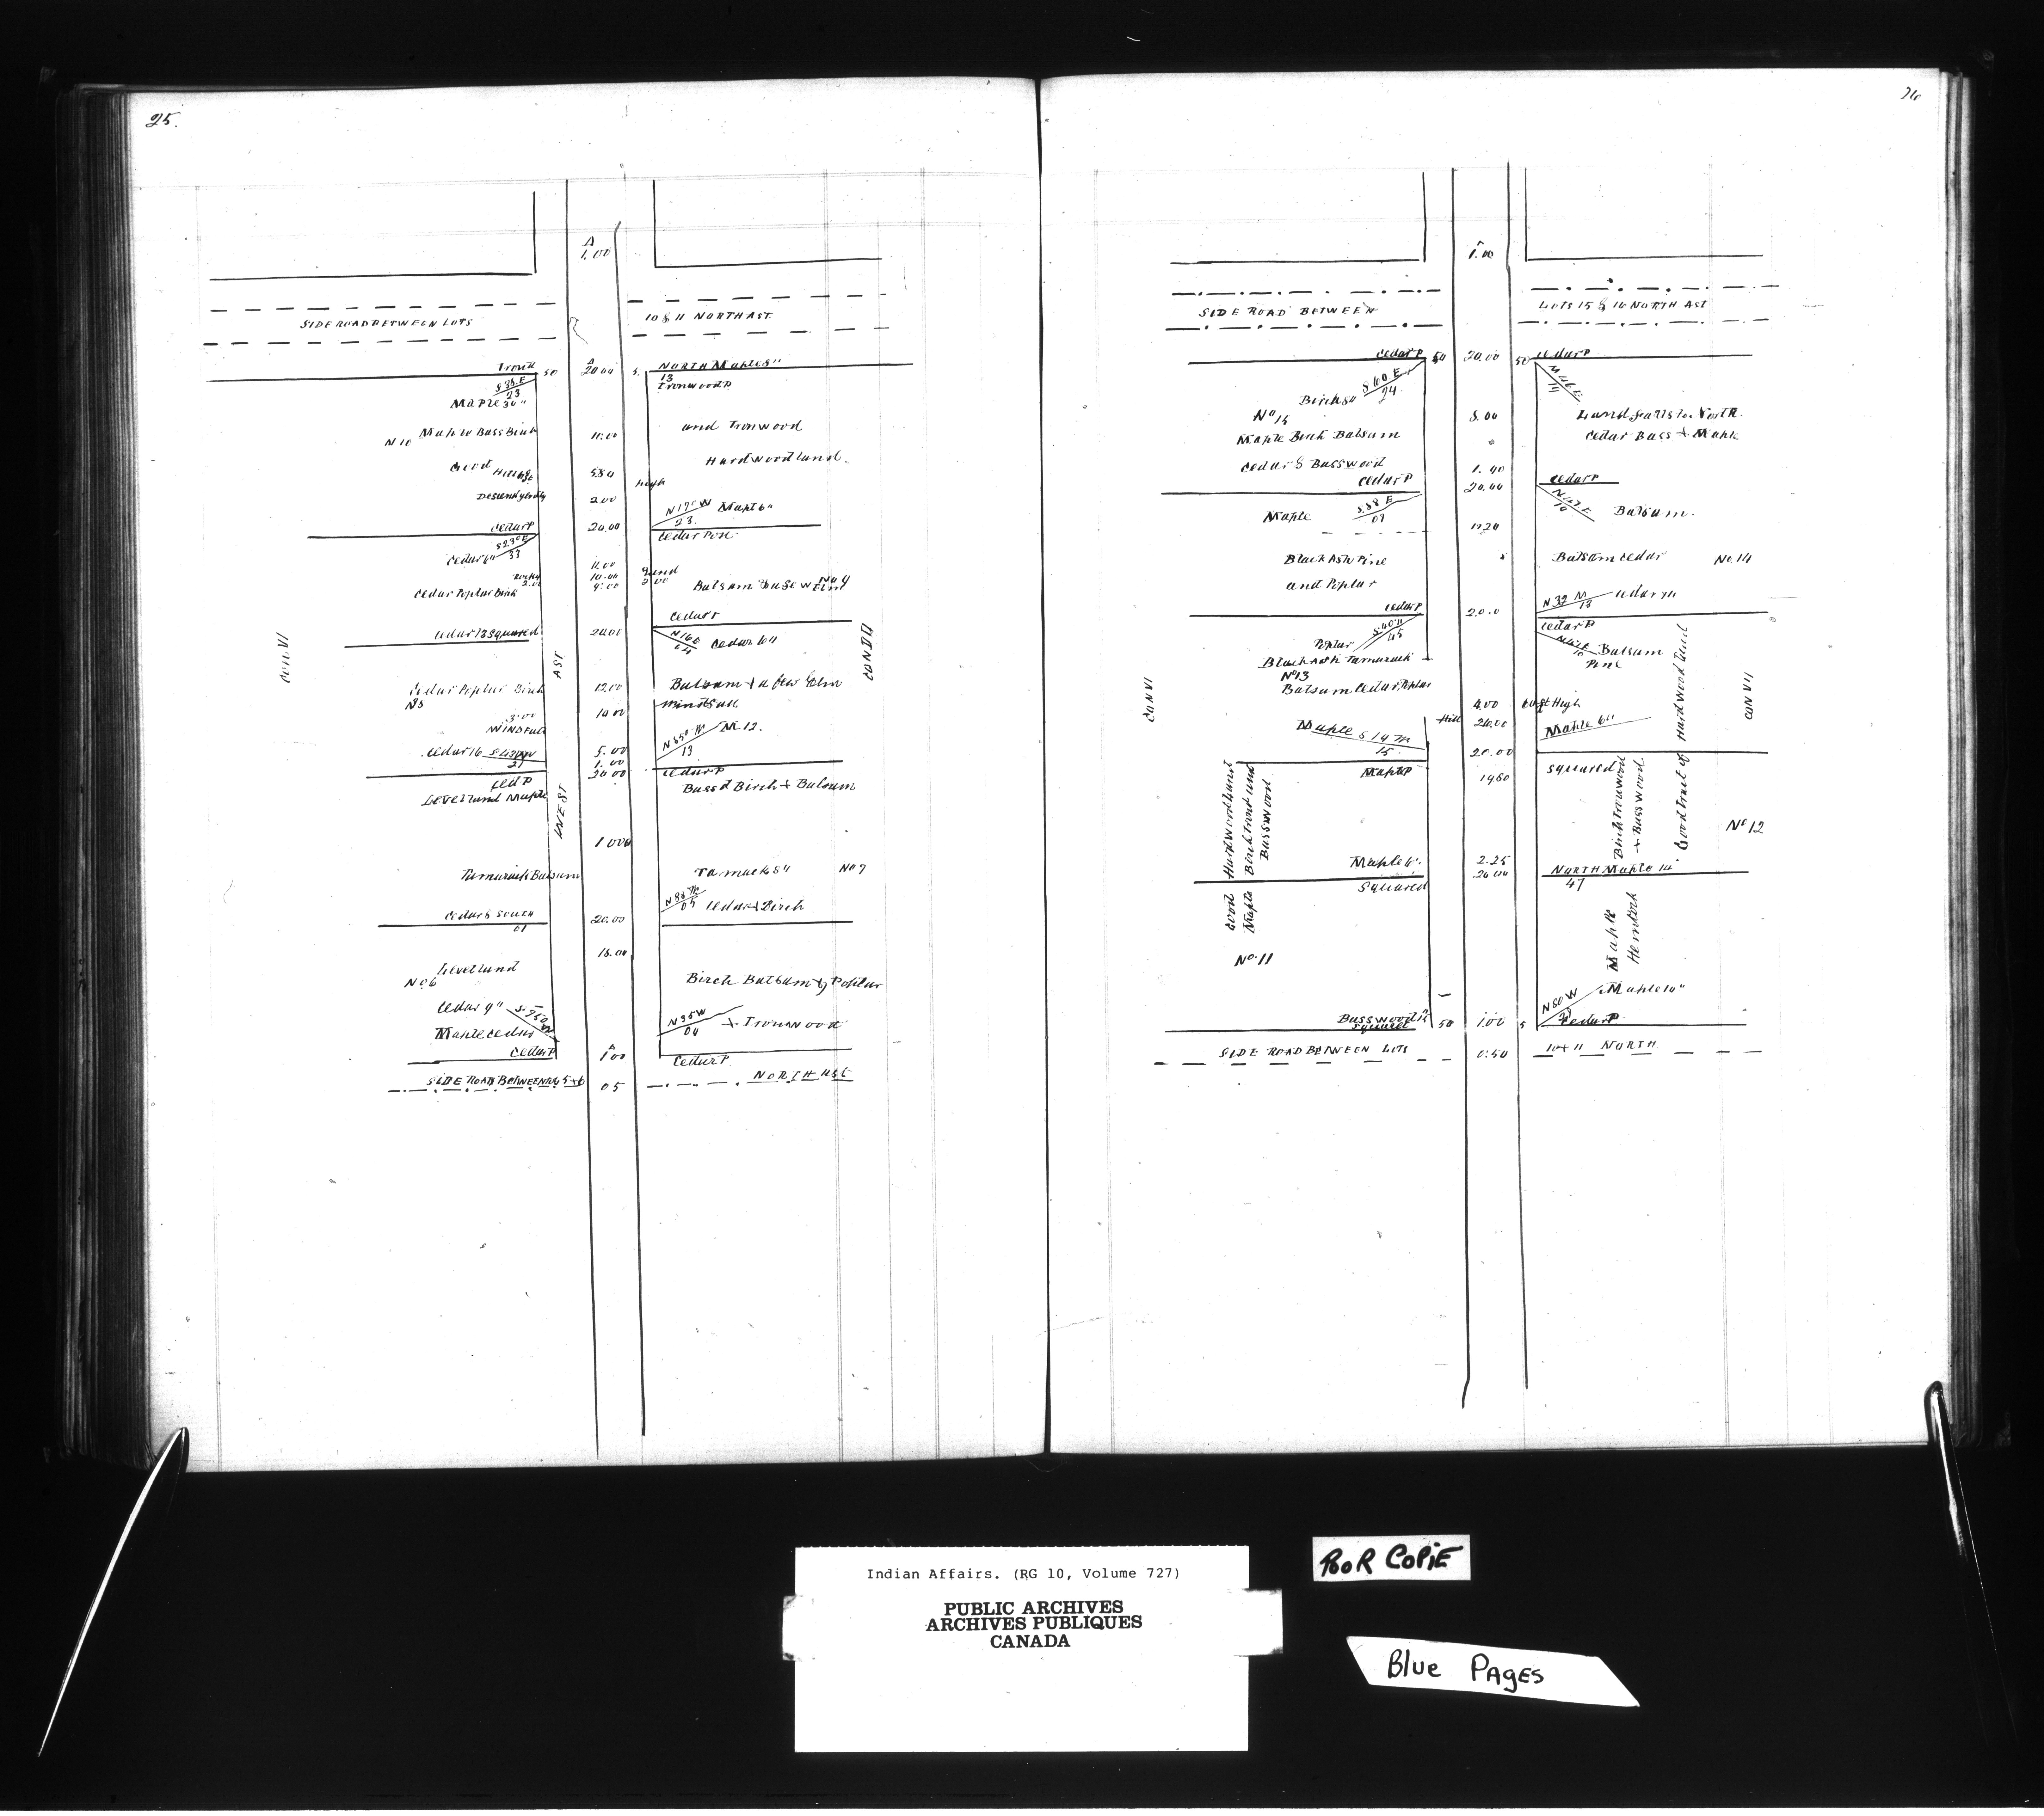 25.
1.00
SIDE ROAD BETWEEN LOTS
10 & 11 NORTH AST
50
20.00
5.
NORTH Maple 8"
13
Ironwood P
S 38 E
23
Maple 30"
and Ironwood
N 10
Maple Bass Birch
11.00
Hardwood land
Good
5.80
high
2.00
N 17° W
23.
Maple 6"
Cedar P
20.00
Cedar Post
S 23° E
33
Cedar 6"
Rocky
11.00
10.00
9.00
Cedar Poplar Birch
Cedar P
Cedar 12 Squared
20.01
N 16 E
Cedar 6"
CON VI
AST
Cedar Poplar Birch
12.00
Balsam & a few Elm
N 8
3.00
WINDFALL
10.00
Windfall
N 12.
13
Cedar 16
21
5.00
1.00
20.00
Cedar P
Ced P
Level land Maple
Bass & Birch & Balsam
WEST
1 000
Tamarack Balsam
No 7
05
Cedar & Birch
Cedar 6 South
01
20.00
18.00
Level land
No 6
Birch Balsam & Poplar
Cedar 9"
Maple Cedar
N 35 W
04
& Ironwood
Cedar P
1.00
Cedar P
SIDE ROAD BETWEEN 5 & 6
05
NORTH
26
1.00
SIDE ROAD BETWEEN
LOTS 15 & 16 NORTH AST
Cedar P
50
20.00
50
Cedar P
S 60 E
24
Birch 8"
N 46 E
No 15
8.00
Land falls to North
Maple Birch Balsam
Cedar Bass & Maple
Cedar & Basswood
1.40
Cedar P
20.00
Cedar P
S 88 E
07
Maple
10
Balsam.
11.20
Black Ash Pine
and Poplar
Balsam Cedar
No 14
N 32 W
13
Cedar P
20.0
Cedar P
45
Poplar
Balsam
Pine
Black Ash Tamarack
No 13
Balsam Cedar Poplar
CON VI
CON VII
4.00
60 ft High
Hill
20.00
Maple 6"
Maple S 14 W
15
20.00
Maple P
19.80
Squared
Hardwood land
Birch Iron and
Basswood
Birch Ironwood
& Basswood
Good tract of Hardwood land
No 12
2.25
20.00
NORTH Maple 10"
47
Squared
Good
Maple
Maple
Hemlock
No. 11
N 50 W
Maple 10"
Basswood
Squared
50
1.00
5
Cedar P
SIDE ROAD BETWEEN LOTS
0.50
10 & 11 NORTH
POOR COPIE
Indian Affairs. (RG 10, Volume 727)
PUBLIC ARCHIVES
ARCHIVES PUBLIQUES
CANADA
Blue PAGES